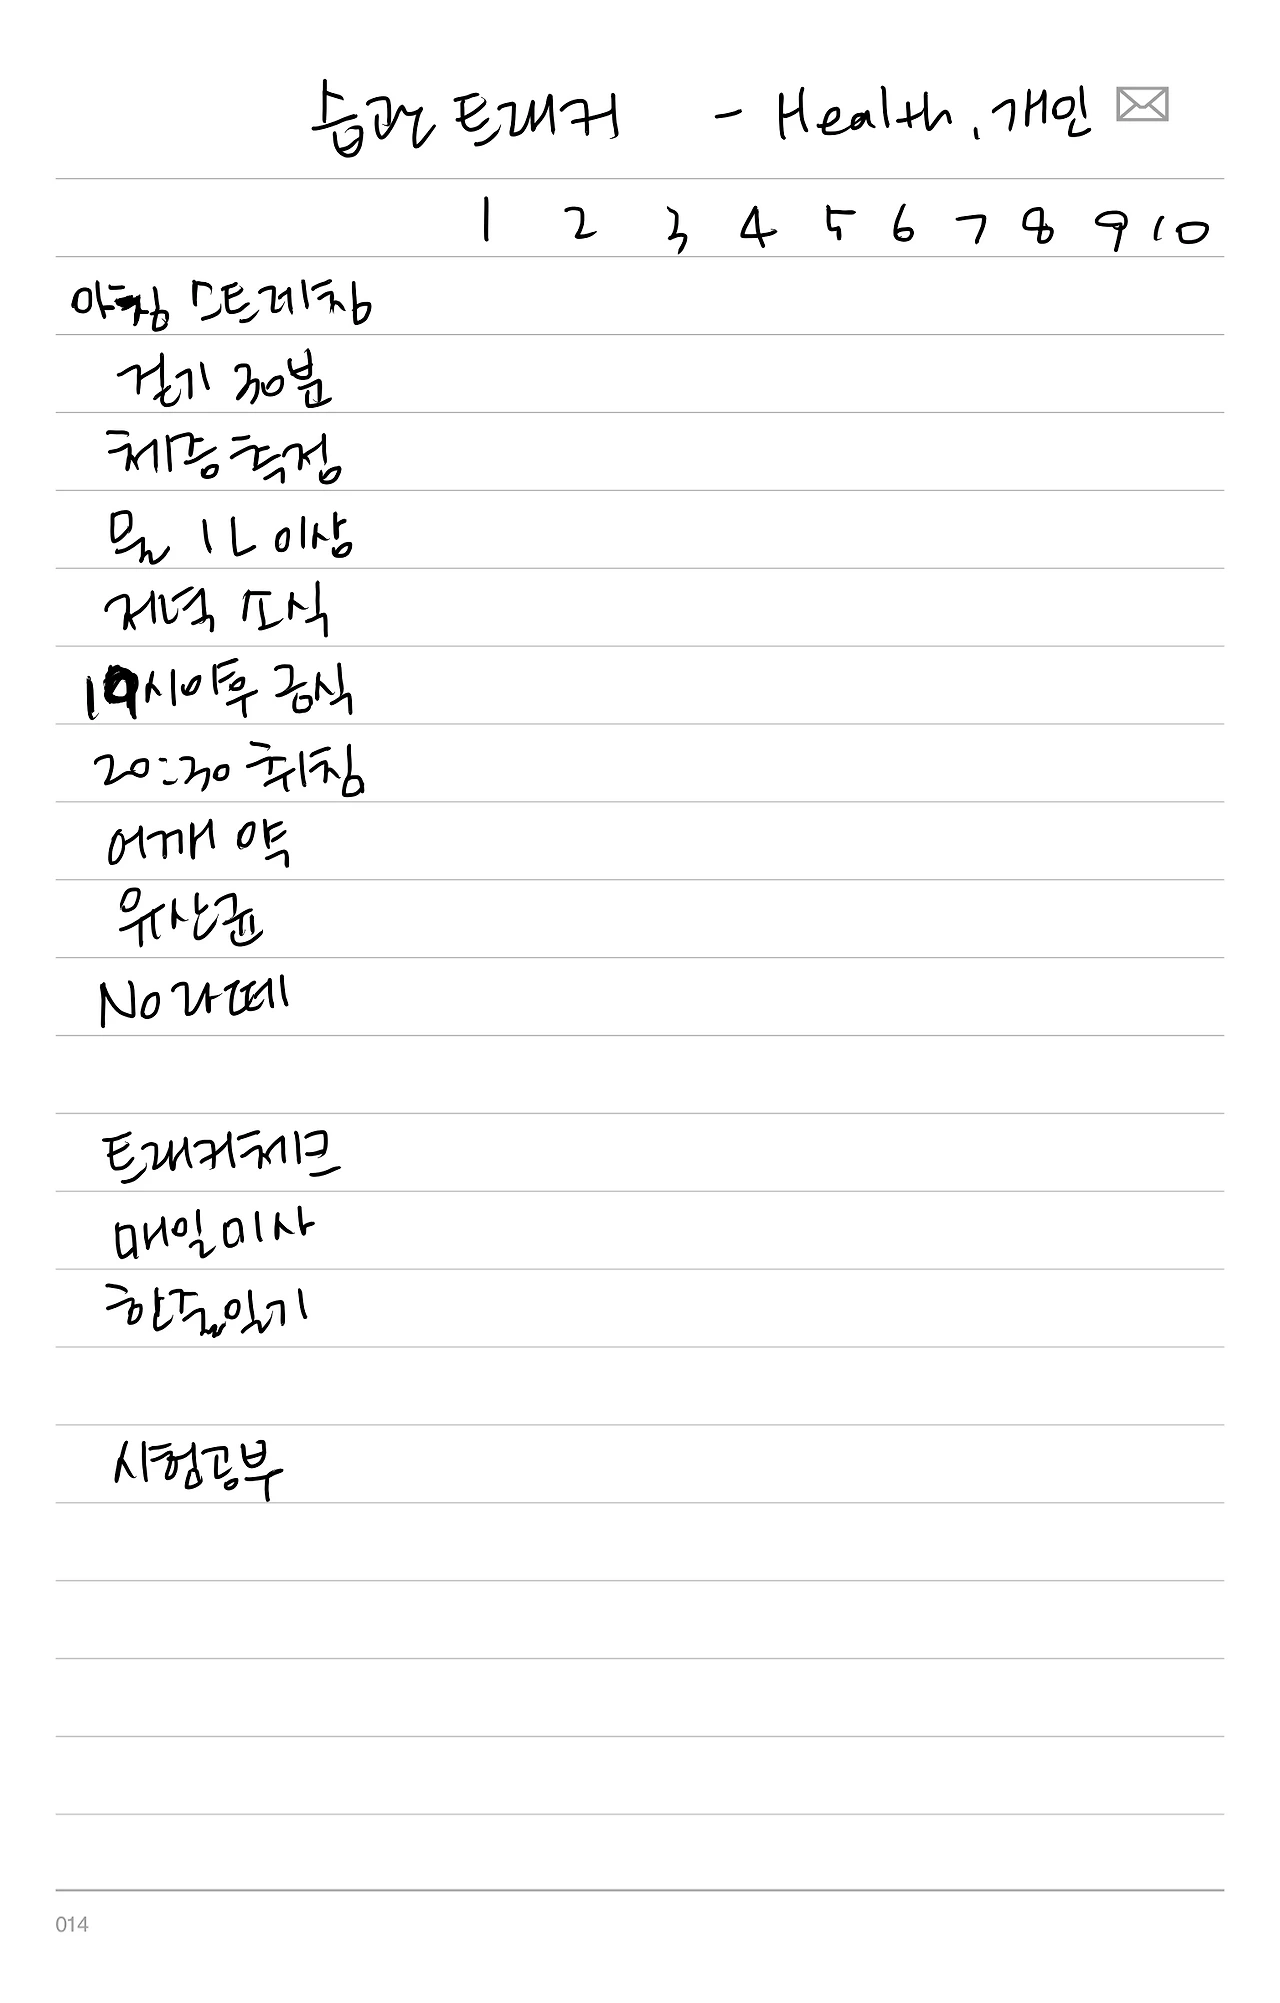 습관 트래커 - Health, 개인
1 2 3 4 5 6 7 8 9 10
아침 스트레칭
걷기 30분
체중 측정
물 1L 이상
저녁 소식
19시이후 금식
20:30 취침
어깨 약
유산균
No 라떼
트래커체크
매일미사
한줄일기
시험공부
014